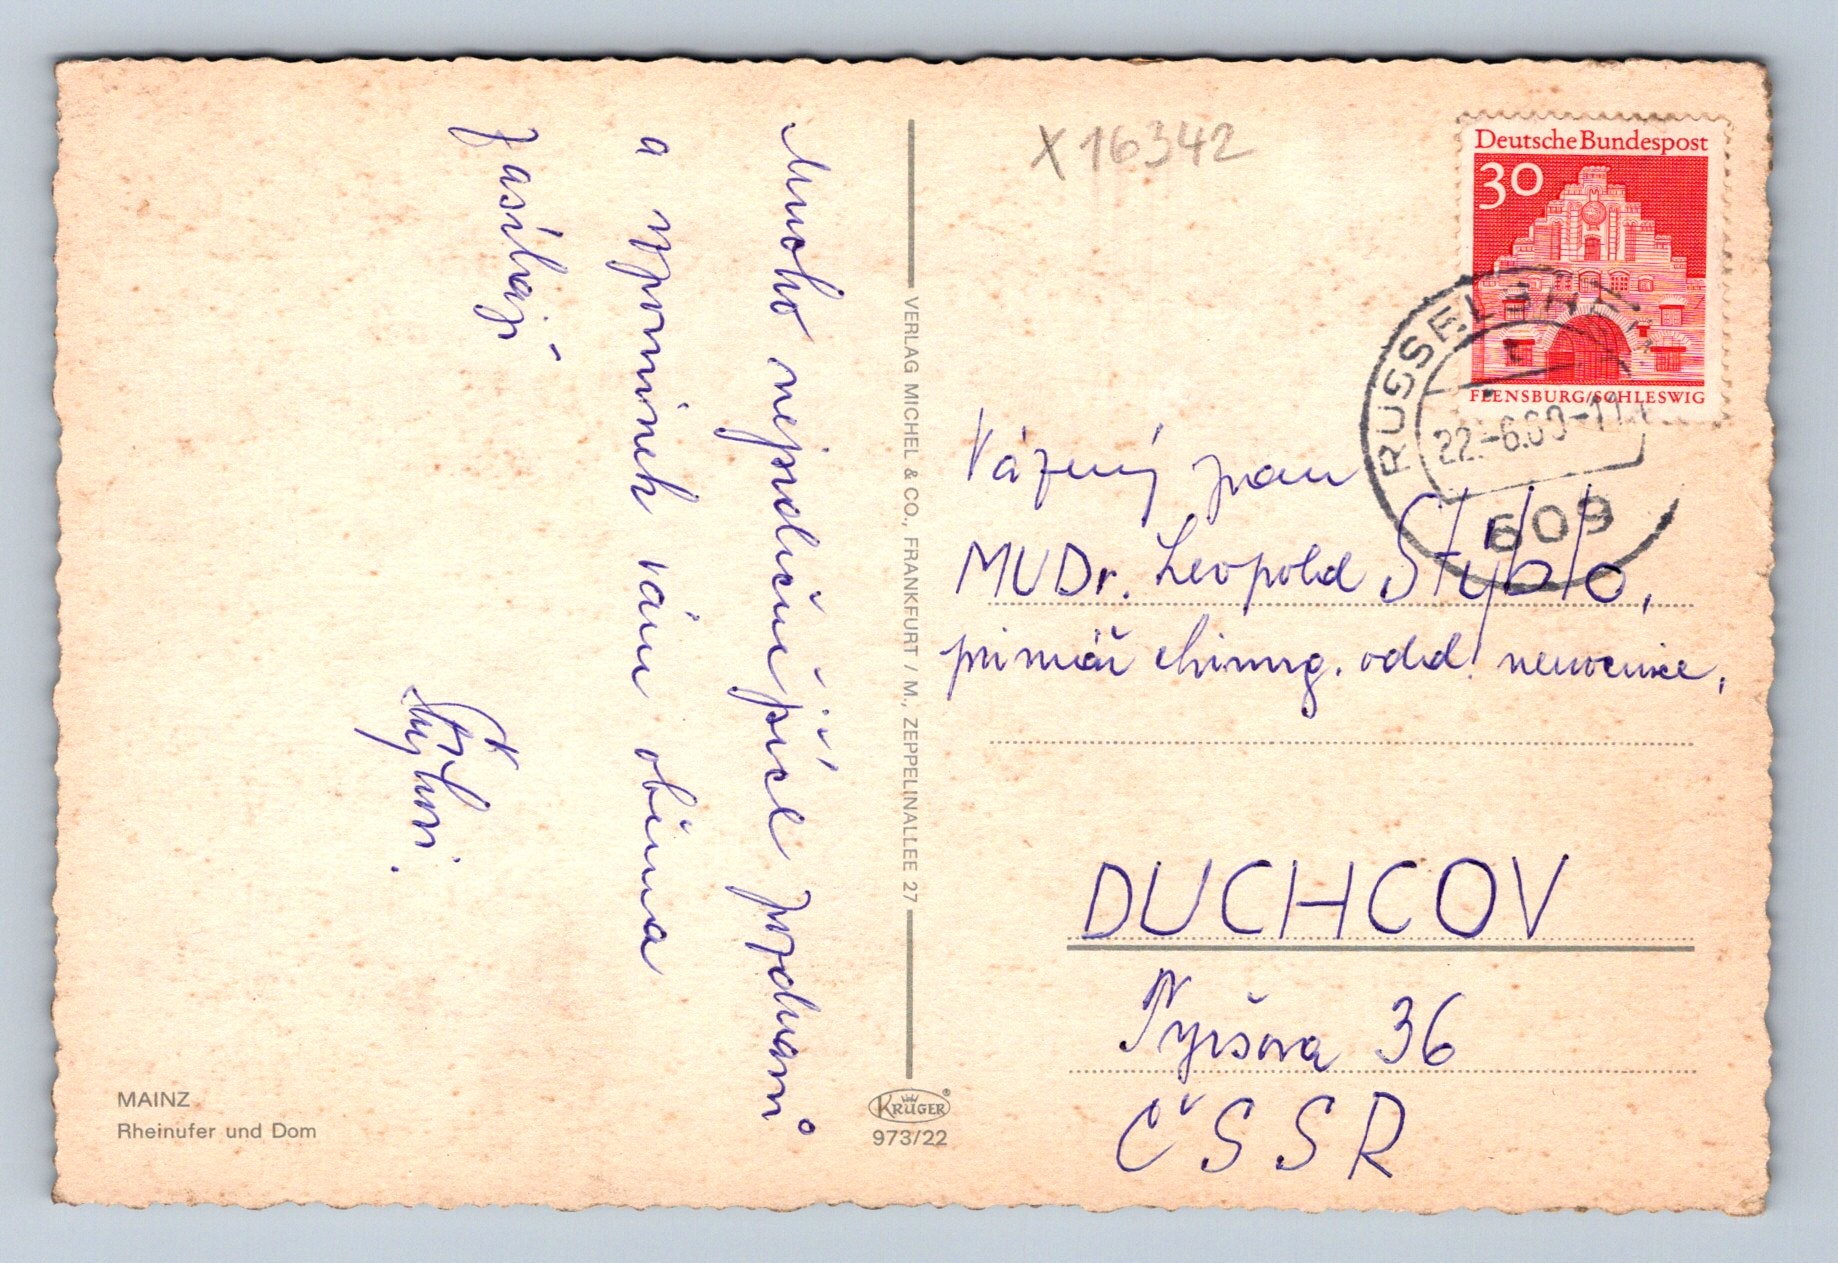 Mnoho nejsrdečnějších pozdravů
a vzpomínek vám oběma
zasílají
MAINZ
Rheinufer und Dom
VERLAG MICHEL & CO., FRANKFURT / M., ZEPPELINALLEE 27
KRÜGER
973/22
X 16342
Deutsche Bundespost
30
FLENSBURG/SCHLESWIG
RÜSSELSHEIM
22.-6.69-11
609
Vážený pan
MUDr. Leopold Stýblo,
primář chirurg. odd. nemocnice,
DUCHCOV
Tyršova 36
ČSSR